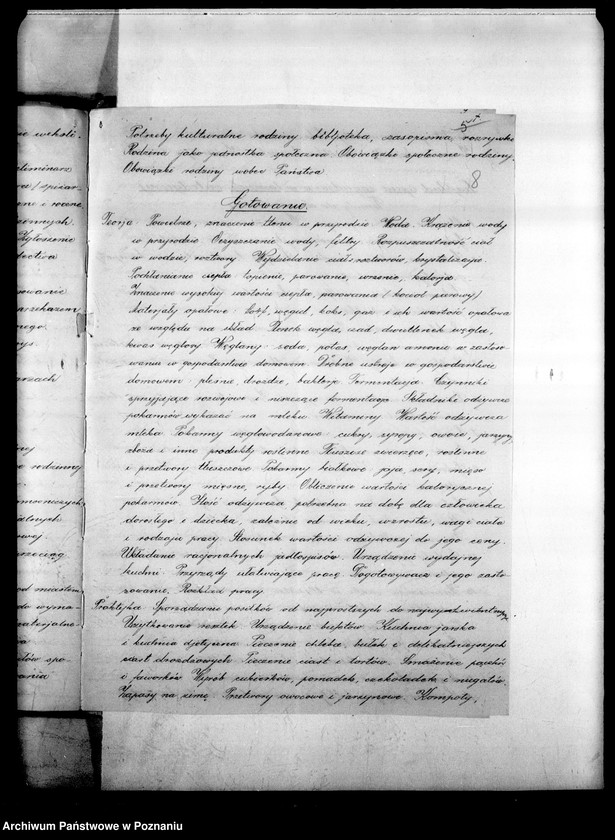 5
Potrzeby kulturalne rodziny bibljoteka, czasopisma, rozrywki
Rodzina jako jednostka społeczna Obowiązki społeczne rodziny.
Obowiązki rodziny wobec Państwa
8
Gotowanie.
Teorja Powietrze, znaczenie tlenu w przyrodzie Woda Krążenie wody
w przyrodzie Oczyszczanie wody, filtry Rozpuszczalność ciał
w wodzie, roztwory Wydzielanie ciał z roztworów, krystalizacja
Pochłanianie ciepła topienie, parowanie, wrzenie, kalorja
Znaczenie wysokiej wartości ciepła, parowania / kocioł parowy /
Materjały opałowe węgiel, koks, gaz i ich wartość opałowa
ze względu na skład Tlenek węgla, czad, dwutlenek węgla,
kwas węglowy Węglany soda, potas, węglan amonu w zastoso-
waniu w gospodarstwie domowem Drobne ustroje w gospodarstwie
domowem pleśnie, drożdże, bakterje Fermentacja Czynniki
sprzyjające rozwojowi i niszczące fermentację Składniki odżywcze
pokarmów wykazać na mleku Witaminy Wartość odżywcza
mleka Pokarmy węglowodanowe cukry, syropy, owoce, jarzyny
zboża i inne produkty roślinne Tłuszcze zwierzęce, roślinne
i przetwory tłuszczowe Pokarmy białkowe jaja, sery, mięso
i przetwory mięsne, ryby Obliczenie wartości kalorycznej
pokarmów Ilość odżywcza potrzebna na dobę dla człowieka
dorosłego i dziecka, zależnie od wieku, wzrostu, wagi ciała
i rodzaju pracy Stosunek wartości odżywczej do jego ceny.
Układanie racjonalnych jadłospisów. Urządzenie wydajnej
kuchni Przyrządy ułatwiające pracę Dogotowywacz i jego zasto-
sowanie. Rozkład pracy
Praktyka Sporządzanie posiłków od najprostszych do najwykwintniejszych
Użytkowanie resztek Urządzenie bufetów Kuchnia jarska
i kuchnia djetyczna Pieczenie chleba, bułek i delikatniejszych
ciast drożdżowych Pieczenie ciast i tortów. Smażenie pączków
i faworków Wyrób cukierków, pomadek, czekoladek i nugatów.
Zapasy na zimę Przetwory owocowe i jarzynowe Kompoty,
nne i roczne
Zgłoszenie
przekazem
rodzinny
od miastem
Archiwum Państwowe w Poznaniu